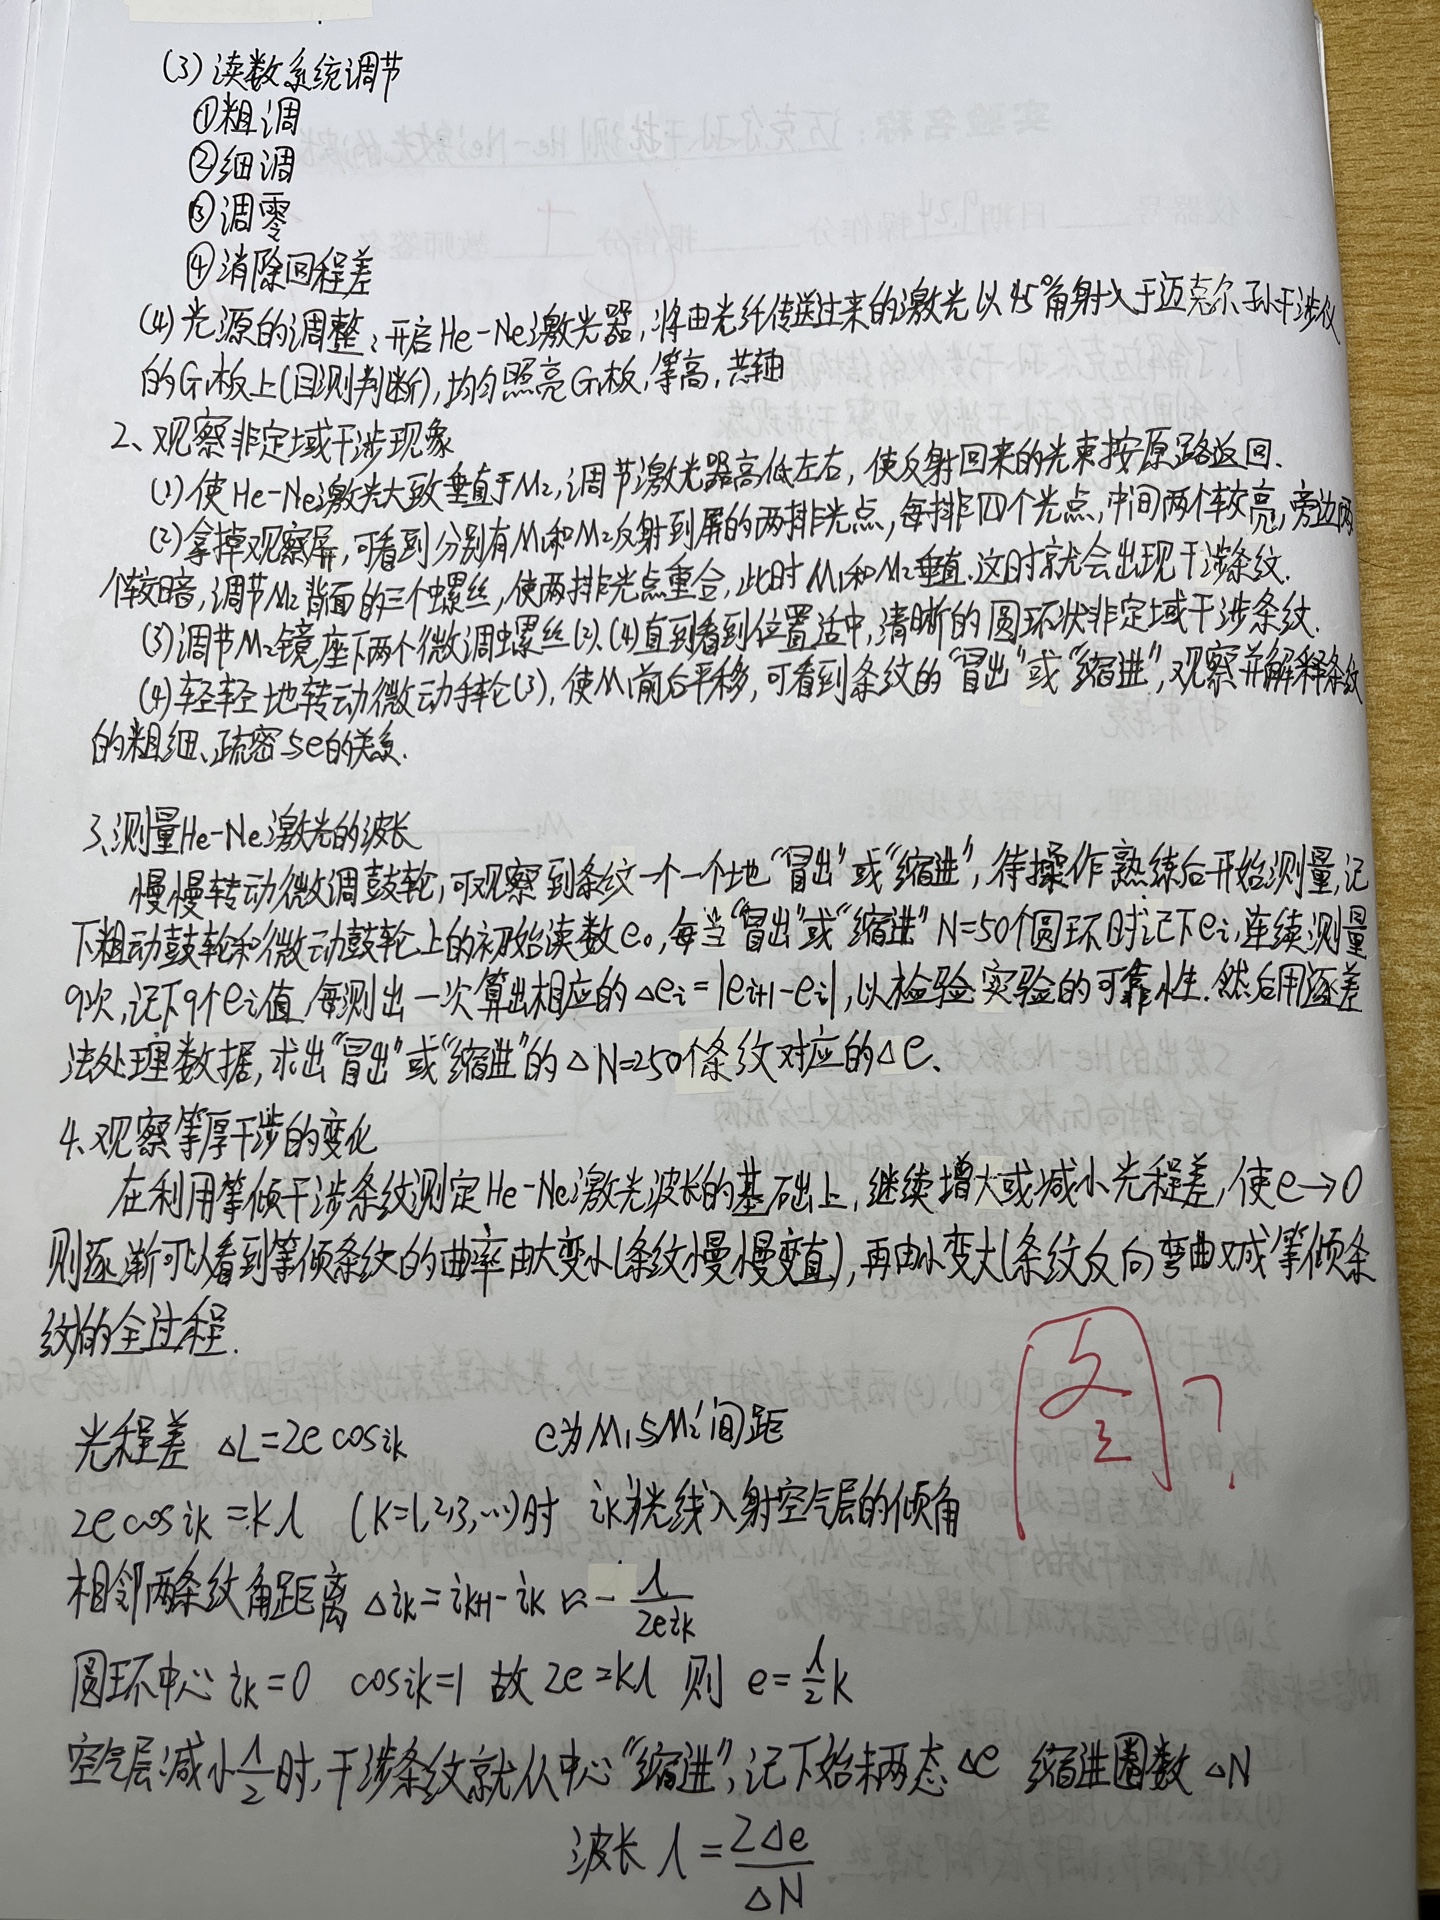 (3) 读数系统调节
①粗调
②细调
③调零
④消除回程差
(4) 光源的调整：开启He-Ne激光器，将由光纤传送过来的激光以45°角射入于迈克尔孙干涉仪
的G₁板上(目测判断)，均匀照亮G₁板，等高，共轴
2、观察非定域干涉现象
(1)使He-Ne激光大致垂直于M₂，调节激光器高低左右，使反射回来的光束按原路返回.
(2)拿掉观察屏，可看到分别有M₁和M₂反射到屏的两排光点，每排四个光点，中间两个较亮，旁边两
个较暗，调节M₂背面的三个螺丝，使两排光点重合，此时M₁和M₂垂直.这时就会出现干涉条纹.
(3)调节M₂镜座下两个微调螺丝(2).(4)直到看到位置适中，清晰的圆环状非定域干涉条纹.
(4)轻轻地转动微动手轮(3)，使M₁前后平移，可看到条纹的“冒出”或“缩进”，观察并解释条纹
的粗细、疏密与e的关系.
3、测量He-Ne激光的波长
慢慢转动微调鼓轮，可观察到条纹一个一个地“冒出”或“缩进”，待操作熟练后开始测量，记
下粗动鼓轮和微动鼓轮上的初始读数e₀，每当“冒出”或“缩进”N=50个圆环时记下eᵢ，连续测量
9次，记下9个eᵢ值，每测出一次算出相应的Δeᵢ=|eᵢ₊₁-eᵢ|，以检验实验的可靠性.然后用逐差
法处理数据，求出“冒出”或“缩进”的ΔN=250个条纹对应的Δe.
4、观察等厚干涉的变化
在利用等倾干涉条纹测定He-Ne激光波长的基础上，继续增大或减小光程差，使e→0
则逐渐可以看到等倾条纹的曲率由大变小(条纹慢慢变直)，再由小变大(条纹反向弯曲又成等倾条
纹)的全过程.
图？
光程差 ΔL=2e cosiₖ e为M₁与M₂'间距
2e cosiₖ=kλ (k=1,2,3,…)时 iₖ为光线入射空气层的倾角
相邻两条纹角距离 Δiₖ=iₖ₊₁-iₖ≈-λ/2eiₖ
圆环中心iₖ=0 cosiₖ=1 故 2e=kλ 则 e=λ/2 k
空气层减小λ/2时，干涉条纹就从中心“缩进”，记下始末两态Δe 缩进圈数ΔN
波长 λ=2Δe/ΔN